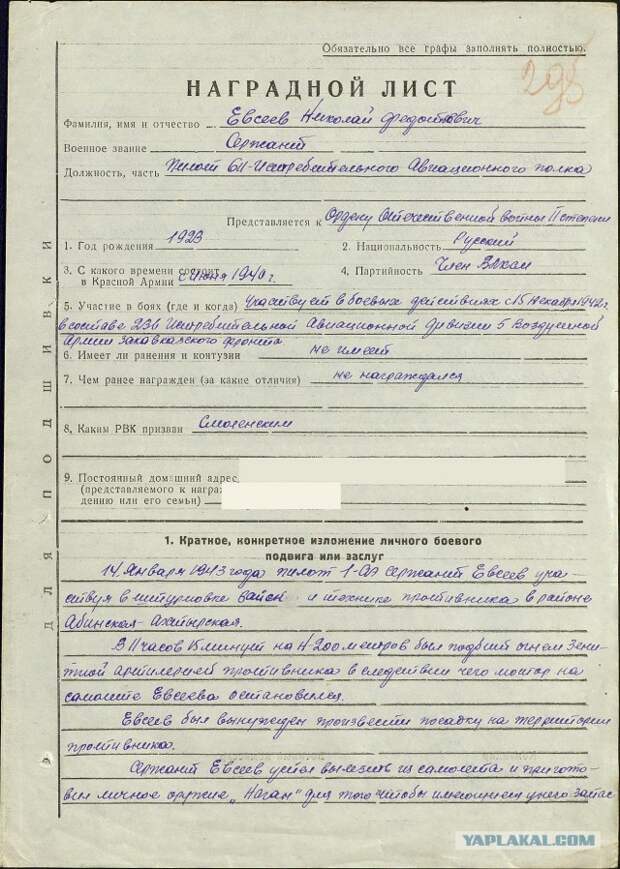 Обязательно все графы заполнять полностью.
298
НАГРАДНОЙ ЛИСТ
Фамилия, имя и отчество Евсеев Николай Федотович
Военное звание Сержант
Должность, часть Пилот 611-Истребительного Авиационного полка
Представляется к Ордену Отечественной войны II степени
1. Год рождения 1923
2. Национальность Русский
3. С какого времени состоит
в Красной Армии с июня 1940г.
4. Партийность Член ВЛКСМ
5. Участие в боях (где и когда) Участвует в боевых действиях с 15 декабря 1942г.
в составе 236 Истребительной Авиационной Дивизии 5 Воздушной
Армии закавказского фронта
6. Имеет ли ранения и контузии не имеет
7. Чем ранее награжден (за какие отличия) не награждался
8. Каким РВК призван Смоленским
9. Постоянный домашний адрес
(представляемого к награж
дению или его семьи)
1. Краткое, конкретное изложение личного боевого
подвига или заслуг
14 Января 1943 года пилот 1-АЭ сержант Евсеев уча-
ствуя в штурмовке войск и технике противника в районе
Абинская-Ахтырская.
В 11 часов 15 минут на Н-200 метров был подбит огнем зени-
тной артилерией противника в следствии чего мотор на
самолете Евсеева остановился.
Евсеев был вынужден произвести посадку на территории
противника.
Сержант Евсеев успел вылезть из самолета и пригото-
вил личное оружие „Наган" для того чтобы имеющием у него запас
ДЛЯ ПОДШИВКИ
YAPLAKAL.COM